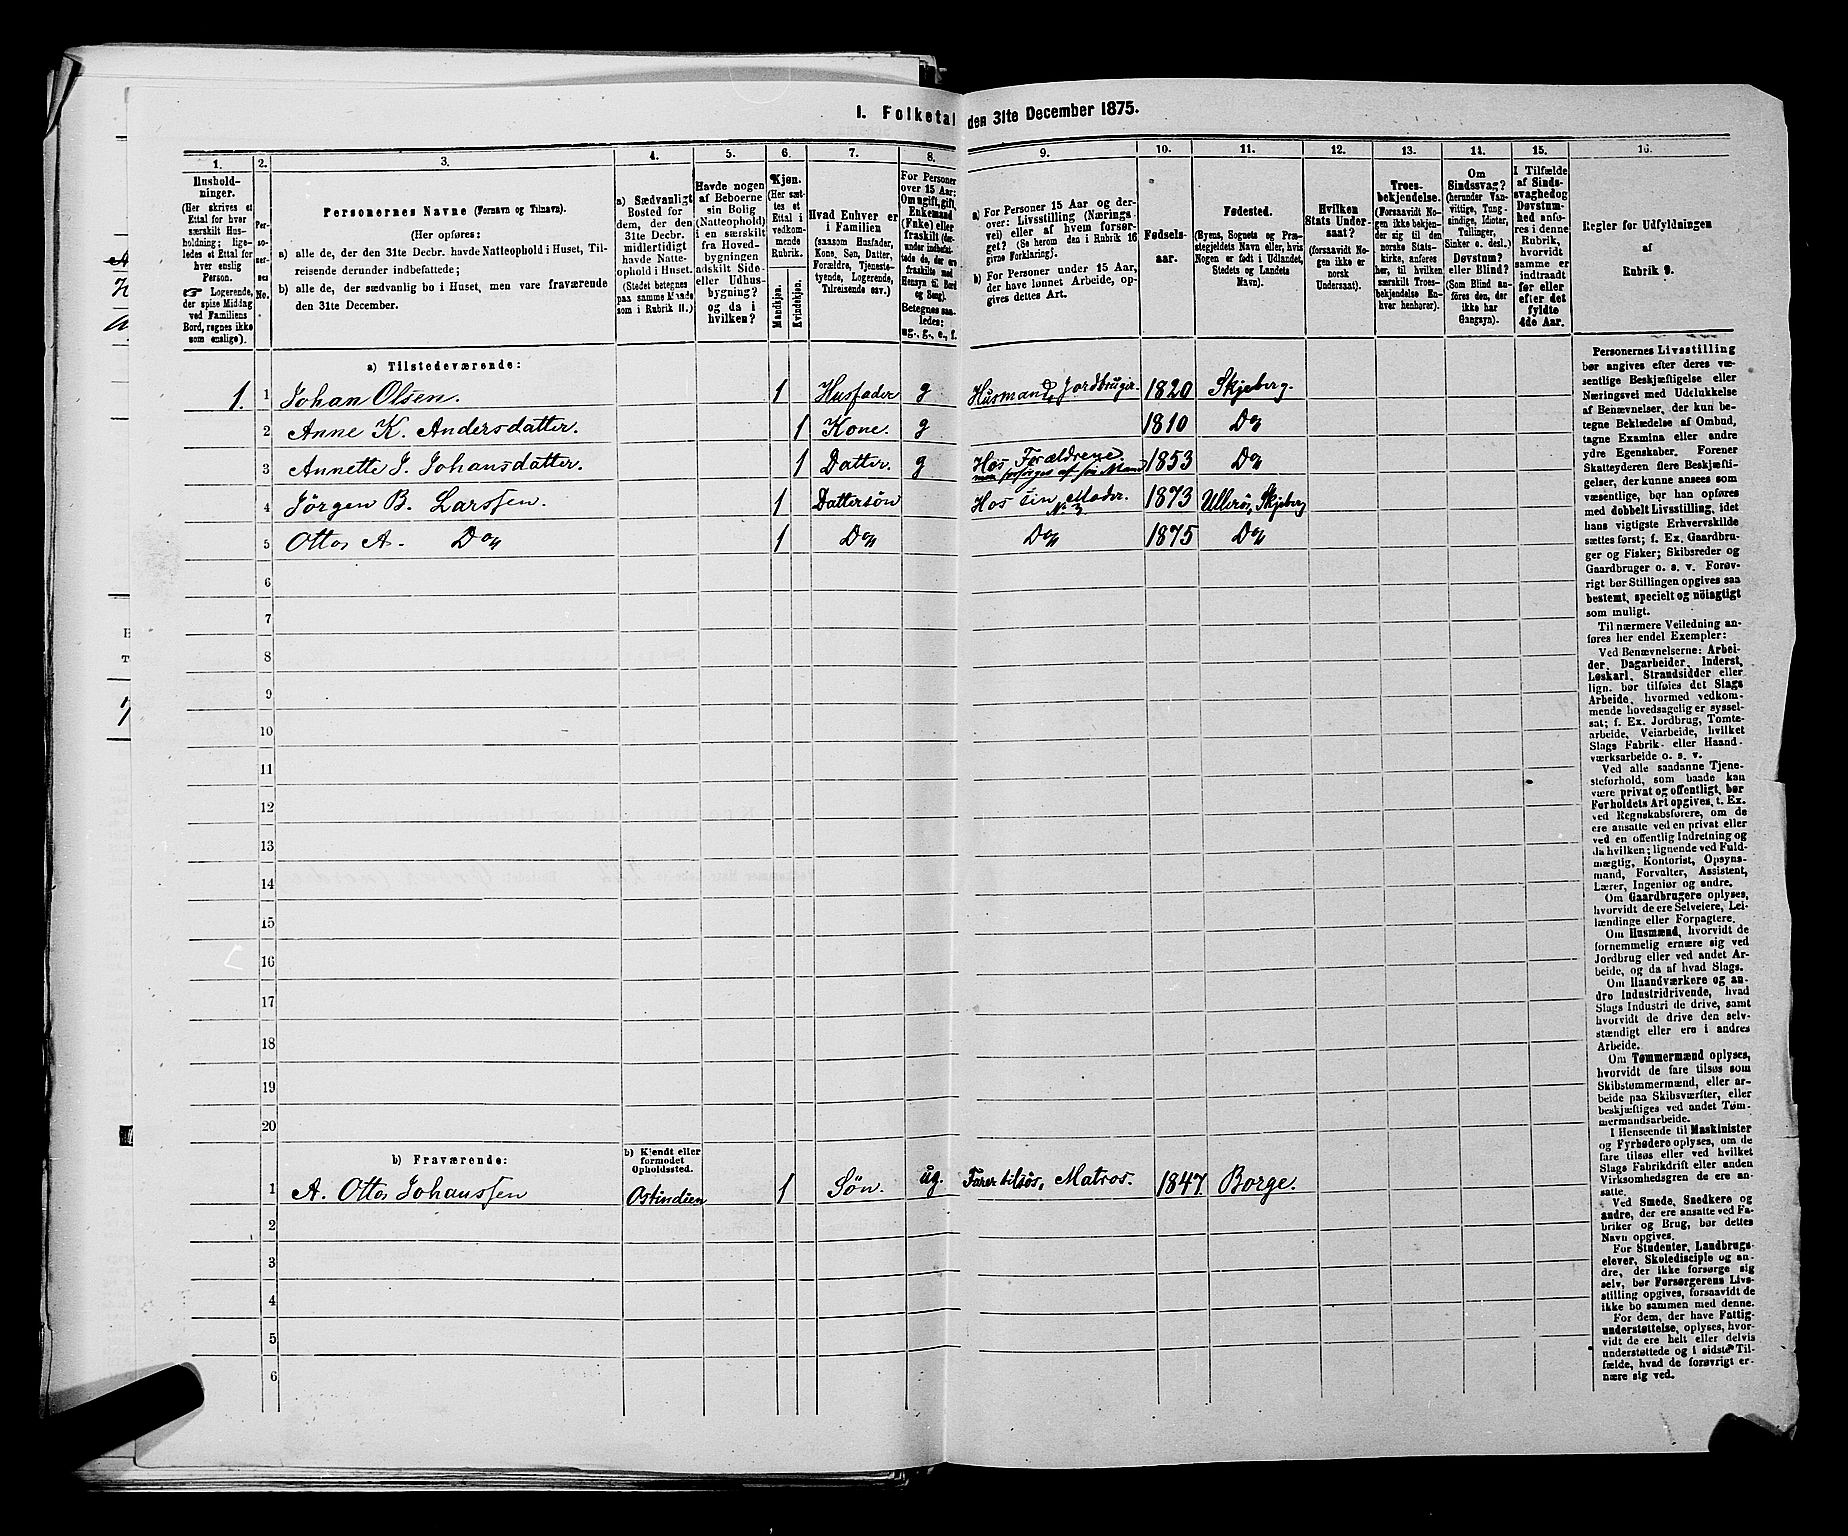 I. Folketal den 31te December 1875.
1. 2. 3. 4. 5. 6. 7. 8. 9. 10. 11. 12. 13. 14. 15. 16.
Husholdninger.
(Her skrives et
Ettal for hver
særskilt Husholdning;
ligeledes et Ettal for
hver enslig
Person.
☞ Logerende,
der spise Middag
ved Familiens
Bord, regnes ikke
som enslige).
Personernes No.
Personernes Navne (Fornavn og Tilnavn).
(Her opføres:
a) alle de, der den 31te Decbr. havde Natteophold i Huset, Tilreisende derunder indbefattede;
b) alle de, der sædvanlig bo i Huset, men vare fraværende
den 31te December.
a) Sædvanligt
Bosted for
dem, der den
31te Decbr.
midlertidigt
havde Natteophold i Huset.
(Stedet betegnes
paa samme Maade
som i Rubrik 11.)
Havde nogen
af Beboerne
sin Bolig
(Natteophold)
i en særskilt
fra Hovedbygningen
adskilt Side-
eller Udhusbygning?
og da i
hvilken?
Kjøn.
(Her sættes et
Ettal i
vedkommende
Rubrik.
Mandkjøn.
Kvindekjøn.
Hvad Enhver er
i Familien
(saasom Husfader,
Kone, Søn, Datter,
Forældre, Tjenestetyende, Logerende,
Tilreisende osv.)
For Personer
over 15 Aar:
Om ugift, gift,
Enkemand
(Enke) eller
fraskilt (derunder indbefattede de, der ere
fraskilte med
Hensyn til Bord
og Seng).
Betegnes saaledes:
ug., g., e., f.
a) For Personer 15 Aar og derover: Livsstilling (Næringsvei) eller af hvem forsørget? (Se herom den i Rubrik 16
givne Forklaring).
b) For Personer under 15 Aar,
der have lønnet Arbeide, opgives dettes Art.
Fødselsaar.
Fødested.
(Byens, Sognets og Præstegjeldets Navn eller, hvis
Nogen er født i Udlandet,
Stedets og Landets
Navn).
Hvilken
Stats Undersaat?
(forsaavidt Nogen ikke er
norsk
Undersaat).
Troesbekjendelse.
(Forsaavidt Nogen ikke bekjender sig til den
norske Statskirke, anføres
her, til hvilken
særskilt Troesbekjendelse Enhver henhører).
Om
Sindssvag?
(herunder Vanvittige, Tungsindige, Idioter,
Tullinger,
Sinker o. desl.)
Døvstum?
eller Blind?
(Som Blind anføres den, der
ikke har
Gangsyn).
I Tilfælde
af Sindssvaghed og
Døvstumhed anføres i denne
Rubrik,
hvorvidt
samme er
indtraadt
før eller
efter det
fyldte
4de Aar.
Regler for Udfyldningen
af
Rubrik 9.
a) Tilstedeværende:
1. 1 Johan Olsen. 1 Husfader g Husmand, Jordbruger. 1820 Skjeberg.
2 Anne K. Andersdatter. 1 Kone. g 1810 Do
3 Annette J. Johansdatter. 1 Datter. g Hos Forældrene men forsørges af sin Mand 1853 Do
4 Jørgen B. Larssen. 1 Dattersøn Hos sin Moder. No 3 1873 Ullerø, Skjeberg
5 Otto A. Do 1 Do Do 1875 Do
6
7
8
9
10
11
12
13
14
15
16
17
18
19
20
b) Fraværende:
b) Kjendt eller
formodet
Opholdssted.
1 A. Otto Johanssen Ostindien 1 Søn. ug. Farer tilsøs, Matros. 1847 Borge.
2
3
4
5
6
Personernes Livsstilling
bør angives efter deres væsentlige Beskjæftigelse eller
Næringsvei med Udelukkelse
af Benævnelser, der kun betegne Beklædelse af Ombud,
tagne Examina eller andre
ydre Egenskaber. Forener
Skatteyderen flere Beskjæftigelser, der kunne ansees som
væsentlige, bør han opføres
med dobbelt Livsstilling, idet
hans vigtigste Erhvervskilde
sættes først; f. Ex. Gaardbruger og Fisker; Skibsreder og
Gaardbruger o. s. v. Forøvrigt bør Stillingen opgives saa
bestemt, specielt og nøiagtigt
som muligt.
Til nærmere Veiledning anføres her endel Exempler:
Ved Benævnelserne: Arbeider, Dagarbeider, Inderst,
Løskarl, Strandsidder eller
lign. bør tilføies det Slags
Arbeide, hvormed vedkommende hovedsagelig er sysselsat; f. Ex. Jordbrug, Tomtearbeide, Veiarbeide, hvilket
Slags Fabrik- eller Haandværksarbeide o. s. v.
Ved alle saadanne Tjenesteforhold, som baade kan
være privat og offentligt, bør
Forholdets Art opgives, t. Ex.
ved Regnskabsførere, om de
ere ansatte ved en privat eller
ved en offentlig Indretning og
da hvilken; lignende ved Fuldmægtig, Kontorist, Opsynsmand, Forvalter, Assistent,
Lærer, Ingeniør og andre.
Om Gaardbrugere oplyses,
hvorvidt de ere Selveiere, Leilændinge eller Forpagtere.
Om Husmænd, hvorvidt de
fornemmelig ernære sig ved
Jordbrug eller ved andet Arbeide, og da af hvad Slags.
Om Haandværkere og andre Industridrivende, hvad
Slags Industri de drive, samt
hvorvidt de drive den selvstændigt eller ere i andres
Arbeide.
Om Tømmermænd oplyses,
hvorvidt de fare tilsøs som
Skibstømmermænd, eller arbeide paa Skibsværfter, eller
beskjæftiges ved andet Tømmermandsarbeide.
I Henseende til Maskinister
og Fyrbødere oplyses, om de
fare tilsøs eller ved hvilket
Slags Fabrikdrift eller anden
Virksomhedsgren de ere ansatte.
Ved Smede, Snedkere og
andre, der ere ansatte ved Fabriker og Brug, bør dettes
Navn opgives.
For Studenter, Landbrugselever, Skoledisciple og andre, der ikke forsørge sig
selv, bør Forsørgerens Livsstilling opgives, forsaavidt de
ikke bo sammen med denne.
For dem, der have Fattigunderstøttelse, oplyses, hvorvidt de ere helt eller delvis
understøttede og i sidste Tilfælde, hvad de forøvrigt ernære sig ved.